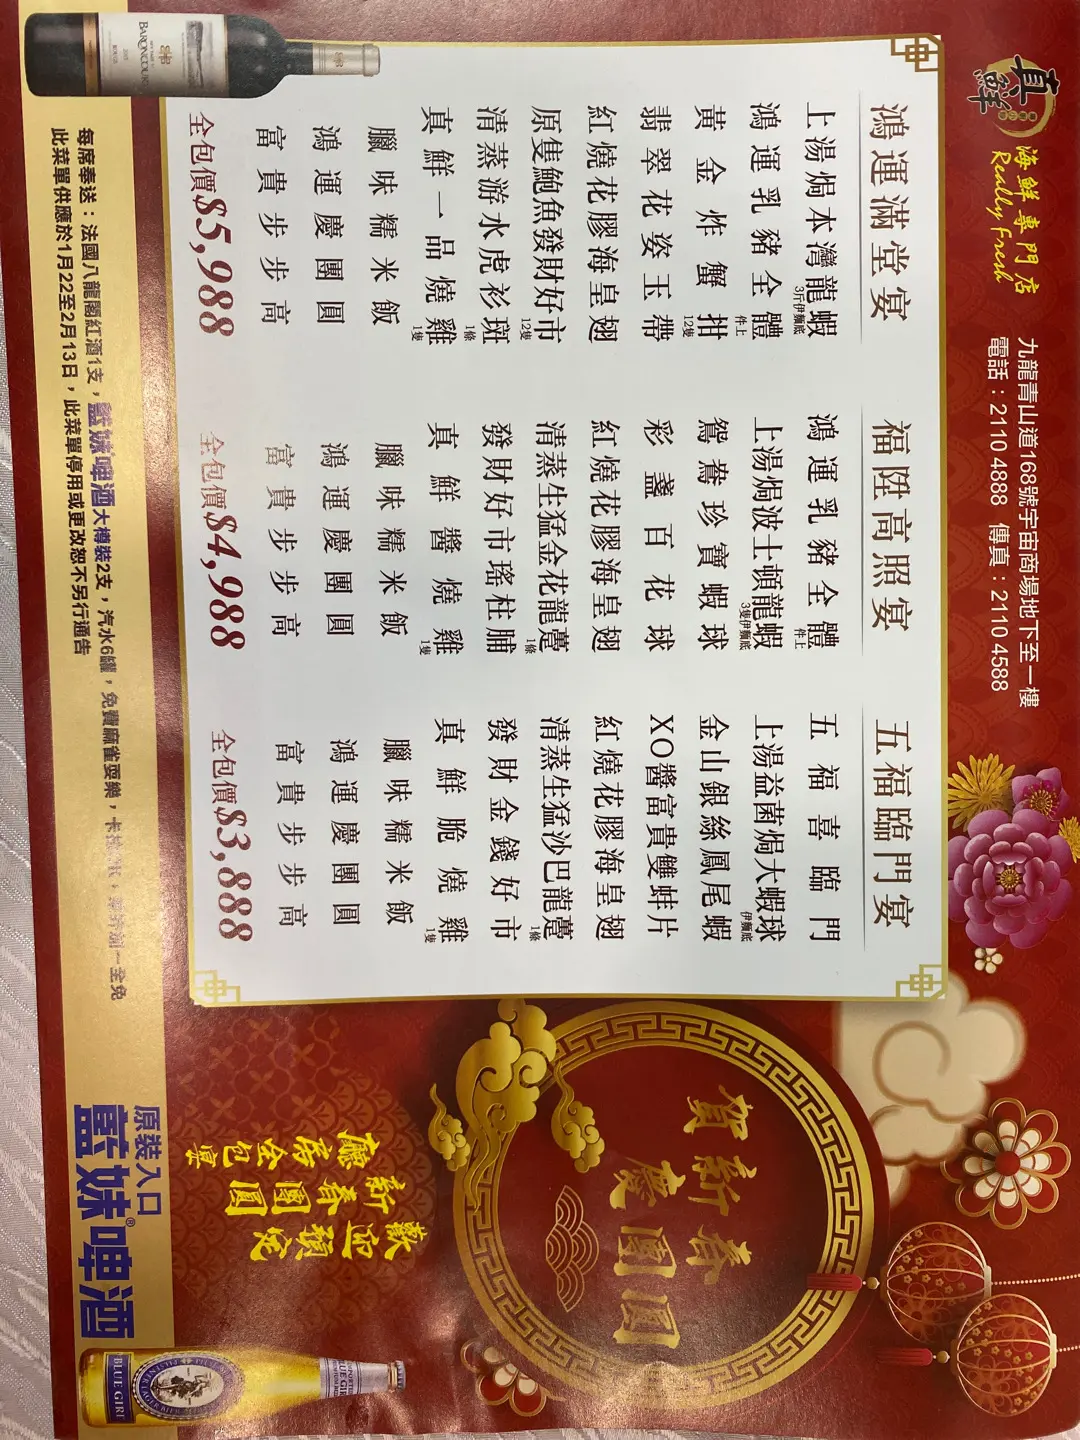 真鮮
海鮮專門店
Really Fresh
九龍青山道168號宇宙商場地下至一樓
電話：2110 4888 傳真：2110 4588
鴻運滿堂宴
上湯焗本灣龍蝦
3斤伊麵底
鴻運乳豬全體
件上
黃金炸蟹拑
12隻
翡翠花姿玉帶
紅燒花膠海皇翅
原隻鮑魚發財好市
12隻
清蒸游水虎衫斑
1條
真鮮一品燒雞
1隻
臘味糯米飯
鴻運慶團圓
富貴步步高
全包價$5,988
福陞高照宴
鴻運乳豬全體
件上
上湯焗波士頓龍蝦
3隻伊麵底
鴛鴦珍寶蝦球
彩盞百花球
紅燒花膠海皇翅
清蒸生猛金花龍躉
1條
發財好市瑤柱脯
真鮮醬燒雞
1隻
臘味糯米飯
鴻運慶團圓
富貴步步高
全包價$4,988
五福臨門宴
五福喜臨門
上湯益菌焗大蝦球
伊麵底
金山銀絲鳳尾蝦
XO醬富貴雙蚌片
紅燒花膠海皇翅
清蒸生猛沙巴龍躉
1條
發財金錢好市
真鮮脆燒雞
1隻
臘味糯米飯
鴻運慶團圓
富貴步步高
全包價$3,888
賀新春
慶團圓
歡迎預定
新春團圓
廳房全包宴
每席奉送：法國八龍閣紅酒1支，藍妹啤酒大樽裝2支，汽水6罐，免費麻雀耍樂，
此菜單供應於1月22至2月13日，此菜單停用或更改恕不另行通告
原裝入口
藍妹®啤酒
BARONCOURT
BLUE GIRL